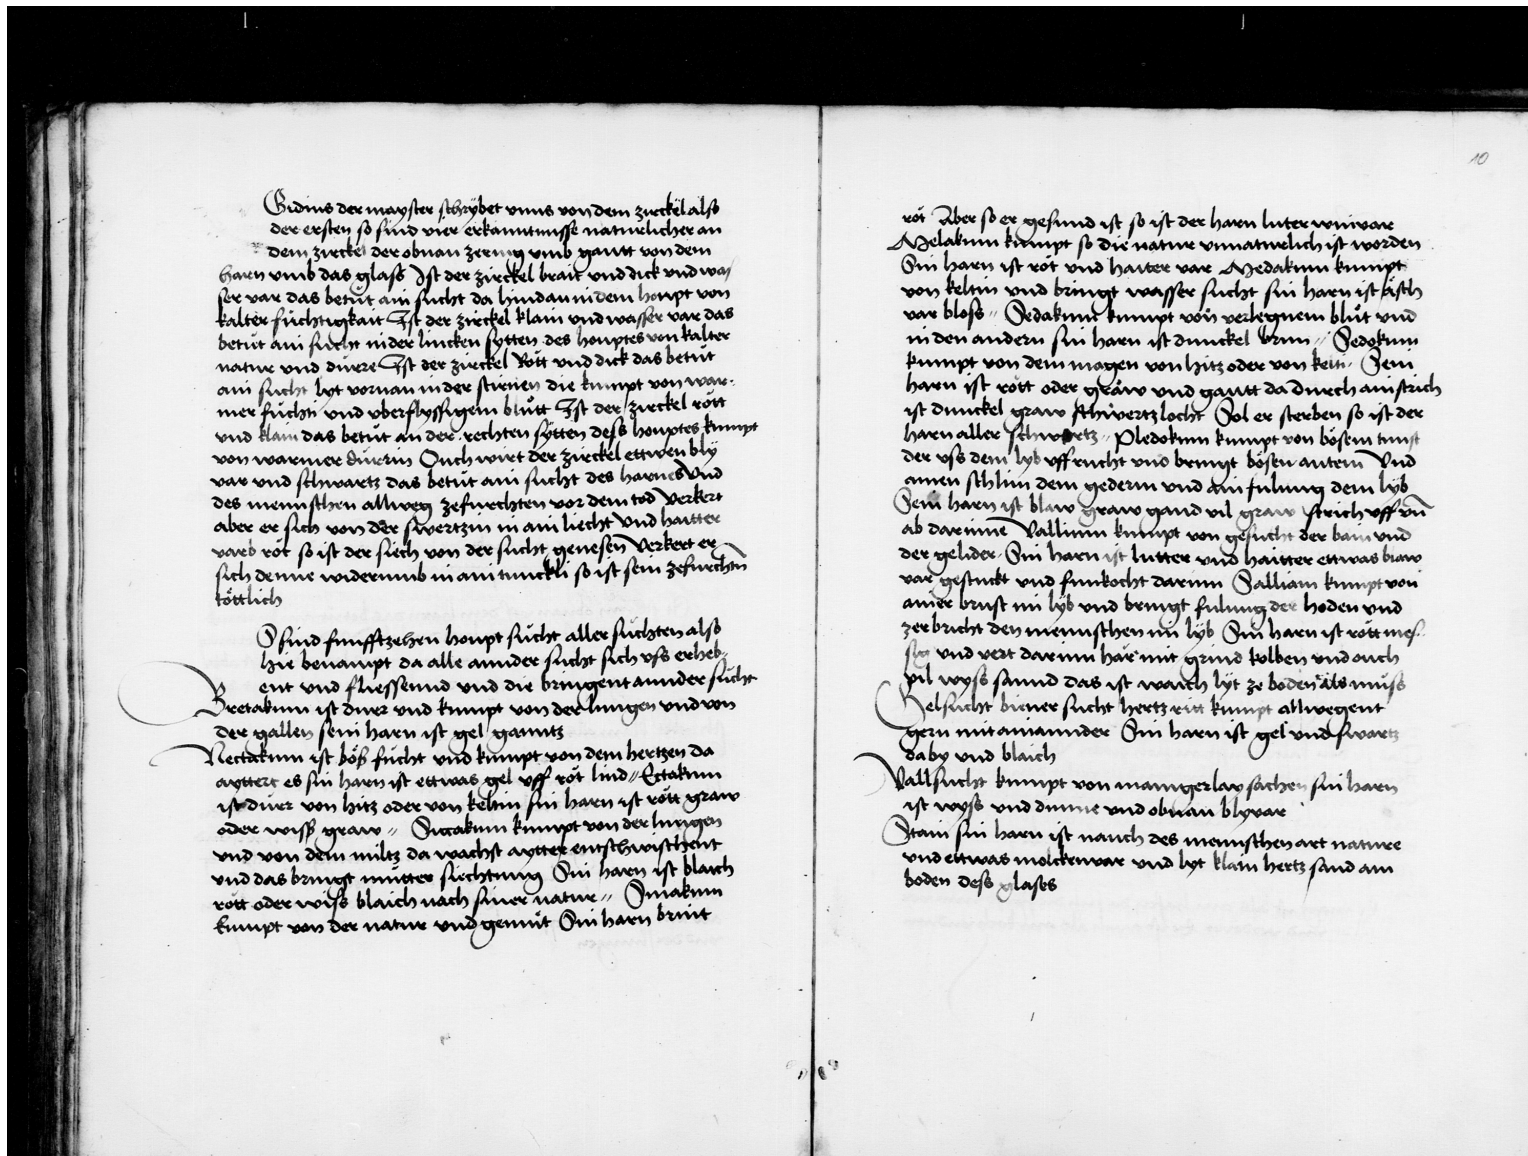 Gidius der mayster schrybet vnns von dem zirckel also
der ersten so sind vier erkanntnusse naturlicher an
dem zirckel der obnan zering vmb gantt von dem
harn vmb das glass Ist der zirckel brait vnd dick vnd was
ser var das betüt ain sucht da hindan in dem houpt von
kalter füchtigkait Ist der zirckel klain vnd wasser var das
betüt ain sucht in der lincken sytten des houptes von kalter
natur vnd dürre Ist der zirckel Rött vnd dick das betüt
ain sucht lyt vornan in der stirnen die kumpt von war
mer füchti vnd vberflyssigem blütt Ist der zirckel rött
vnd klain das betüt an der rechten sytten dess houptes kumpt
von warmer dürrin Ouch wirt der zirckel ettwen bly
var vnd schwartz das betüt ain sucht des harnes Vnd
des mennschen allweg zefurchten vor dem tod Verkert
aber er sich von der swertzin in ain liecht vnd haitter
varb röt so ist der siech von der sucht genesen Verkert er
sich denne widerumb in ain tunckli so ist sein zefurchtn
töttlich
S sind funfftzehen houpt sücht aller süchten also
hie benampt da alle annder sücht sich vss erheb
ent vnd fliessennd vnd die bringent annder sücht
Bretakum ist dürr vnd kumpt von der lungen vnd von
der gallen sein harn ist gel ganntz
Nectakum ist böß fücht vnd kumpt von dem hertzen da
ayttert es sin harn ist ettwas gel vff röt lind Ectakum
ist dürr von hitz oder von keltin sin harn ist rött graw
oder wiss graw Siccakum kumpt von der lungen
vnd von dem miltz da wachst aytter entschwischent
vnd das bringt mutter süchtung Sin harn ist blaich
rött oder wiss blaich nach siner natur Smakum
kumpt von der natur vnd gemüt Sin harn brint
10
röt Aber so er gesund ist so ist der harn luter winvar
Melakum kumpt so die natur vnnaturlich ist worden
Sin harn ist röt vnd haiter var Medakum kumpt
von keltin vnd bringt wasser sucht sin harn ist äsch
var bloss Sedakum kumpt von verlegnem blüt vnd
in den andern sin harn ist dunckel brun Sedokum
kumpt von dem magen von hitz oder von kelti Sein
harn ist rött oder gräw vnd gantt da durch ain strich
ist dunckel graw schwertzlocht Sol er sterben so ist der
harn aller schwertz Pledokum kumpt von bösem tunst
der vss dem lyb vff rucht vnd bringt bösenautem Vnd
ainen schlim dem gederm vnd ain fulung dem lyb
Sein harn ist blaw graw gand vil graw strich vff vn
ab darinne Vallium kumpt von gesücht der bain vnd
der gelider Sin harn ist lutter vnd haitter ettwas blaw
var gestuckt vnd funkocht darinn Salliam kumpt von
ainer brust im lyb vnd bringt fulung der hoden vnd
zerbricht den mennschen im lyb Sin harn ist rött mes
sig vnd vert darinn här mit grind kolben vnd ouch
vil wyss sannd das ist waich lyt ze boden als müss
Gelsucht biener sucht hertz ritt kumpt allwegent
gern mit ainannder Sin harn ist gel vnd swartz
daby vnd blaich
Vallsucht kumpt von mannigerlay sachen sin harn
ist wyss vnd dunne vnd obnan blyvar
Stain sin harn ist nauch des mennschen art nature
vnd ettwas molckenvar vnd lyt klain hertz sand am
boden dess glases